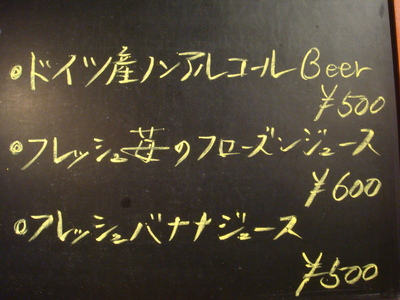 •ドイツ産ノンアルコールBeer
¥500
•フレッシュ苺のフローズンジュース
¥600
•フレッシュバナナジュース
¥500